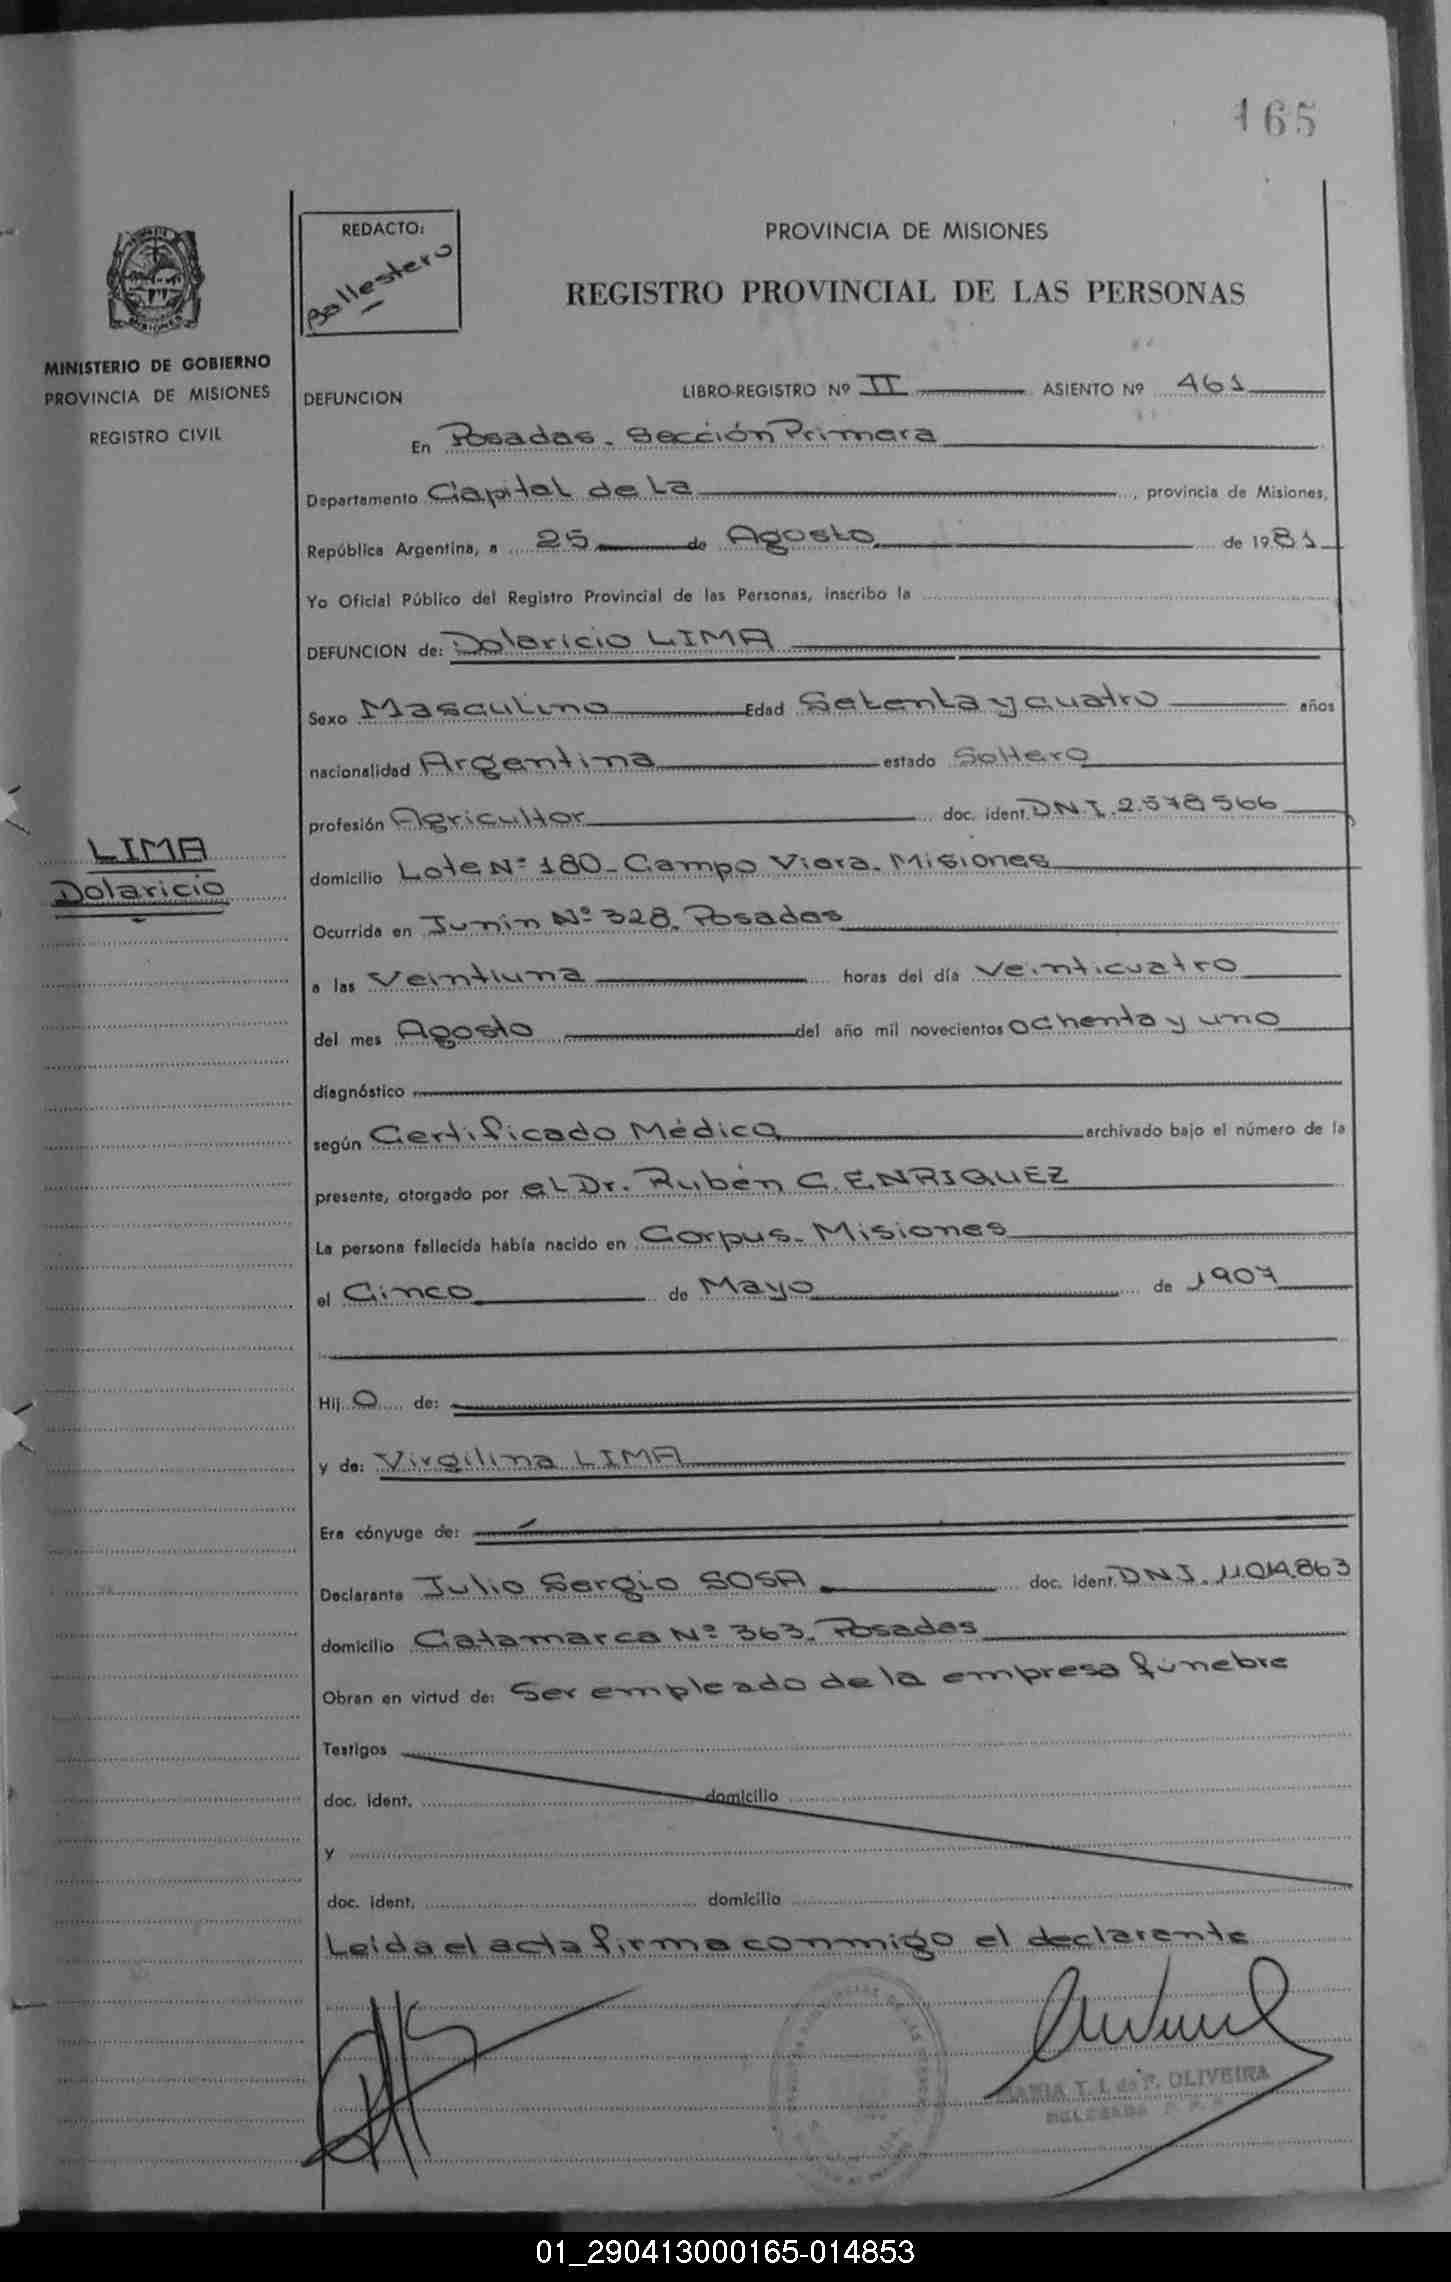 165
REDACTO:
Ballestero
PROVINCIA DE MISIONES
REGISTRO PROVINCIAL DE LAS PERSONAS
MISIONES
MINISTERIO DE GOBIERNO
PROVINCIA DE MISIONES
REGISTRO CIVIL
DEFUNCION LIBRO-REGISTRO Nº II ASIENTO Nº 461
En Posadas. Sección Primera
Departamento Capital de La, provincia de Misiones,
República Argentina, a 25 de Agosto de 1981
Yo Oficial Público del Registro Provincial de las Personas, inscribo la
DEFUNCION de: Dolaricio LIMA
Sexo Masculino Edad Setenta y cuatro años
nacionalidad Argentina estado Soltero
profesión Agricultor doc. ident. D.N.I. 2.578566
LIMA
Dolaricio
domicilio Lote Nº 180_ Campo Viera. Misiones
Ocurrida en Junin Nº 328. Posadas
a las Veintiuna horas del día Veinticuatro
del mes Agosto del año mil novecientos ochenta y uno
diagnóstico
según Certificado Médico archivado bajo el número de la
presente, otorgado por el Dr. Rubén C. ENRIQUEZ
La persona fallecida había nacido en Corpus. Misiones
el Cinco de Mayo de 1907
Hij o de:
y de: Virgilina LIMA
Era cónyuge de:
Declarante Julio Sergio SOSA doc. ident. D.N.I. 11.014.863
domicilio Catamarca Nº 363. Posadas
Obran en virtud de: Ser empleado de la empresa fúnebre
Testigos
doc. ident. domicilio
y
doc. ident. domicilio
Leida el acta firma conmigo el declarante
MARIA T. I. de P. OLIVEIRA
DELEGADA
01_290413000165-014853